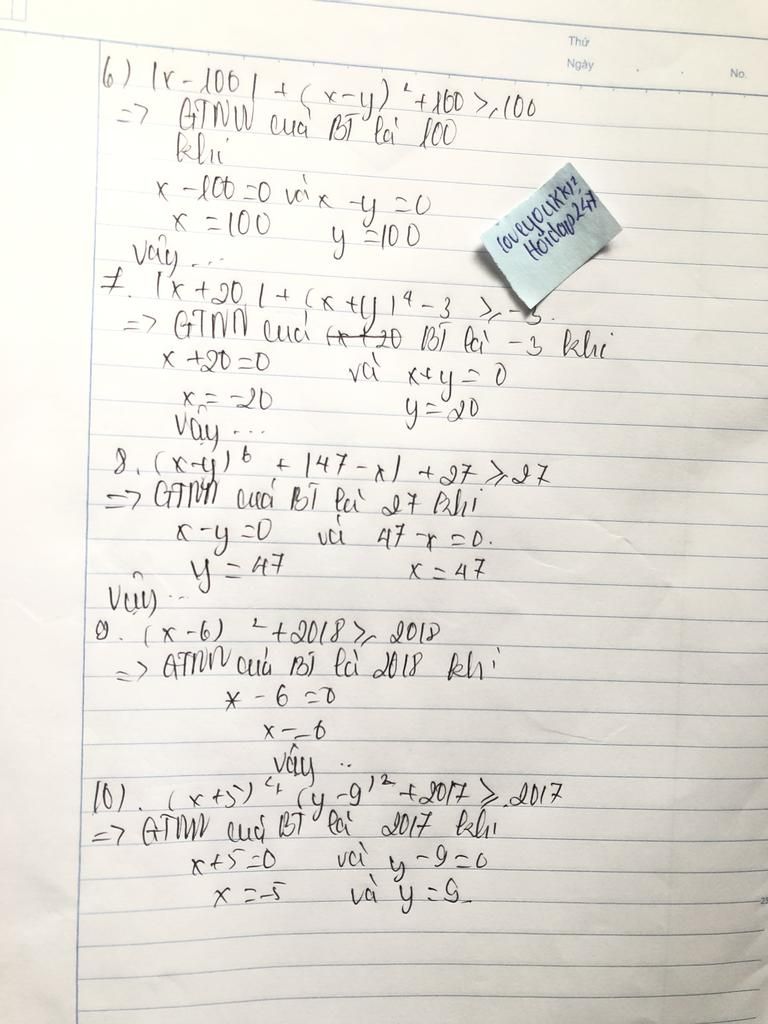 Thứ
Ngày
No.
6) |x - 100| + (x-y)² + 100 ≥ 100
=> GTNN cuả BT là 100
khi
x - 100 = 0 và x - y = 0
x = 100 y = 100
Vậy ...
loveyoukk12
Hoidap247
7. |x + 20| + (x + y)⁴ - 3 ≥ -3.
=> GTNN cuả BT là -3 khi
x + 20 = 0 và x + y = 0
x = -20 y = 20
Vậy ...
8. (x-y)⁶ + |47 - x| + 27 ≥ 27
=> GTNN cuả BT là 27 khi
x - y = 0 và 47 - x = 0.
y = 47 x = 47
Vậy ...
9. (x - 6)² + 2018 ≥ 2018
=> GTNN cuả BT là 2018 khi
x - 6 = 0
x = 6
Vậy ..
10). (x+5)⁴ (y - 9)² + 2017 ≥ 2017
=> GTNN cuả BT là 2017 khi
x + 5 = 0 và y - 9 = 0
x = -5 và y = 9